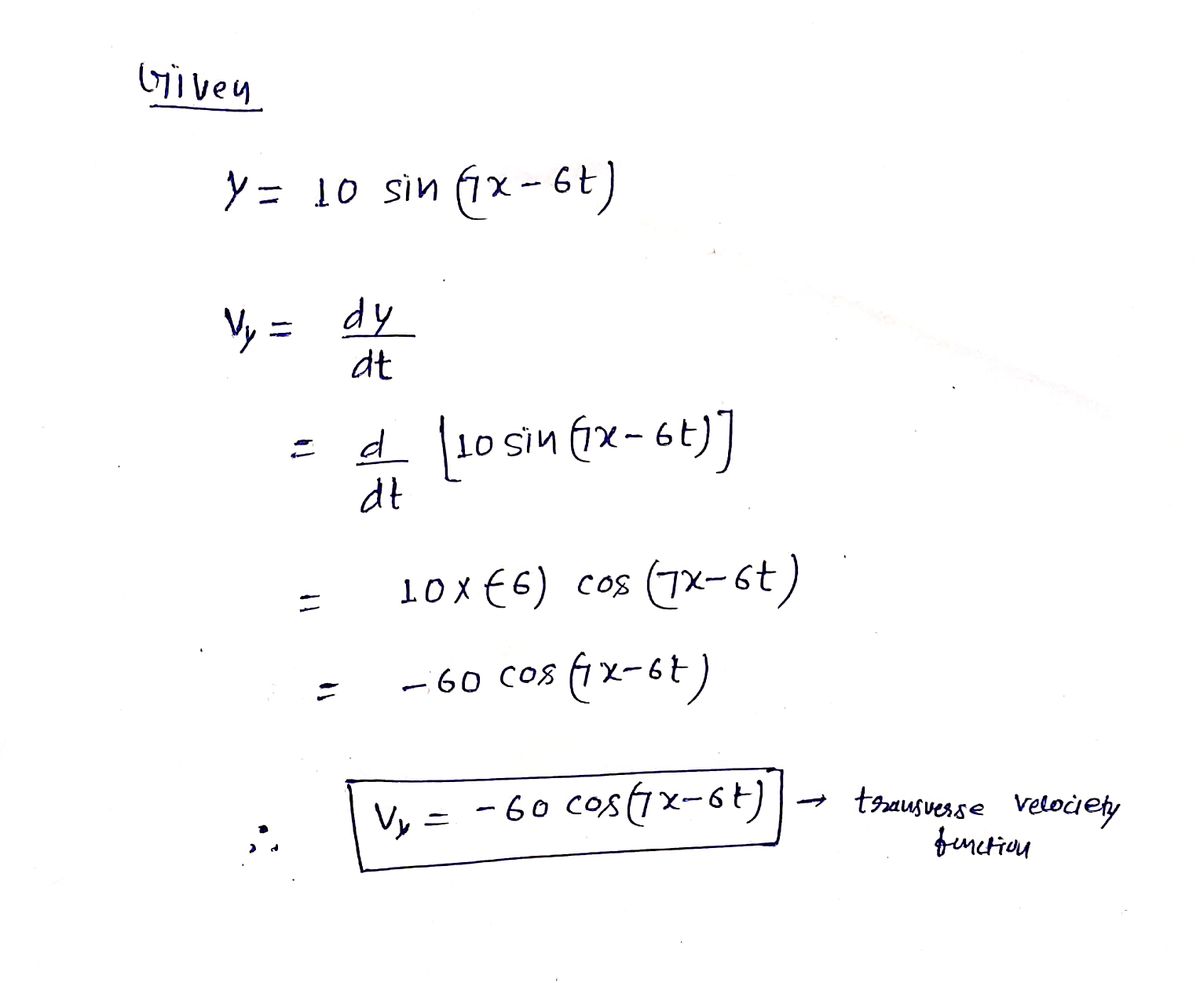 Given
y = 10 sin (7x - 6t)
Vy = dy/dt
= d/dt [10 sin (7x - 6t)]
= 10 x (-6) cos (7x - 6t)
= -60 cos (7x - 6t)
∴ Vy = -60 cos (7x - 6t) → transverse velociety
function